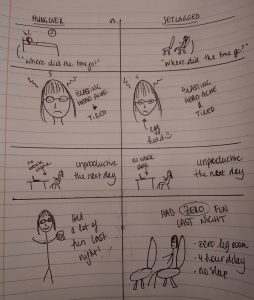 HUNGOVER vs JETLAGGED
"Where did the time go?"
"Where did the time go?"
BLASTING
HEAD ACHE
&
TIRED
BLASTING
HEAD ACHE
&
TIRED
egg
head
unproductive
the next day
unproductive
the next day
Had
a lot of
fun last
night!
HAD ZERO FUN
LAST NIGHT
- zero leg room
- 4 hour delay
- no sleep